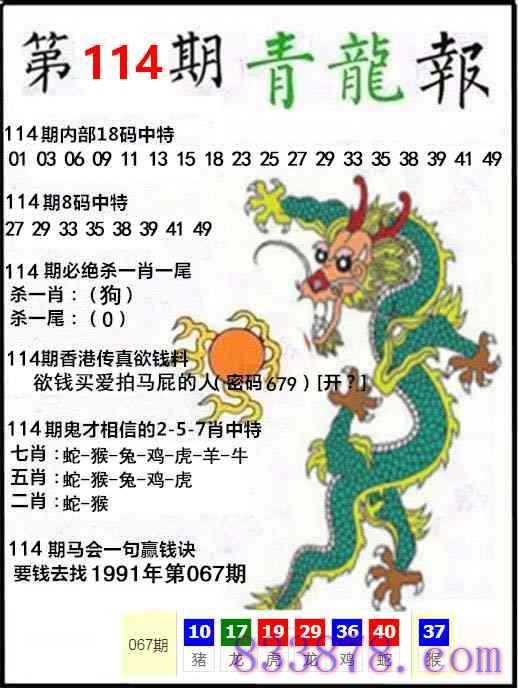 第114期 青龍 報
114期内部18码中特
01 03 06 09 11 13 15 18 23 25 27 29 33 35 38 39 41 49
114期8码中特
27 29 33 35 38 39 41 49
114 期必绝杀一肖一尾
杀一肖：（狗）
杀一尾：（0）
114期香港传真欲钱料
欲钱买爱拍马屁的人(密码679)[开?]
114期鬼才相信的2-5-7肖中特
七肖：蛇-猴-兔-鸡-虎-羊-牛
五肖：蛇-猴-兔-鸡-虎
二肖：蛇-猴
114 期马会一句赢钱诀
要钱去找1991年第067期
067期 10 17 19 29 36 40 37
猪 龙 虎 龙 鸡 蛇 猴
833878.com